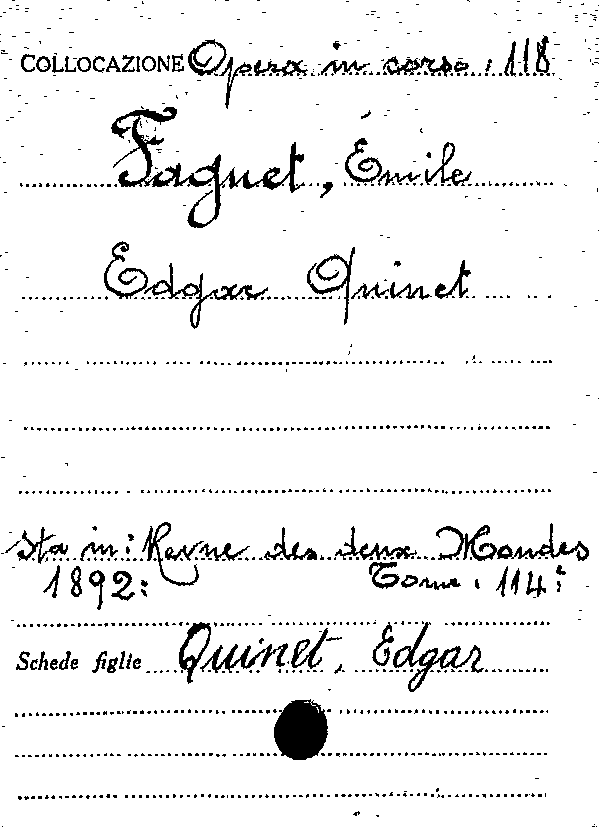 COLLOCAZIONE Opera in corso . 118
Faguet, Émile
Edgar Quinet
Sta in: Revue des deux Mondes
1892: Tome . 114:
Schede figlie Quinet, Edgar